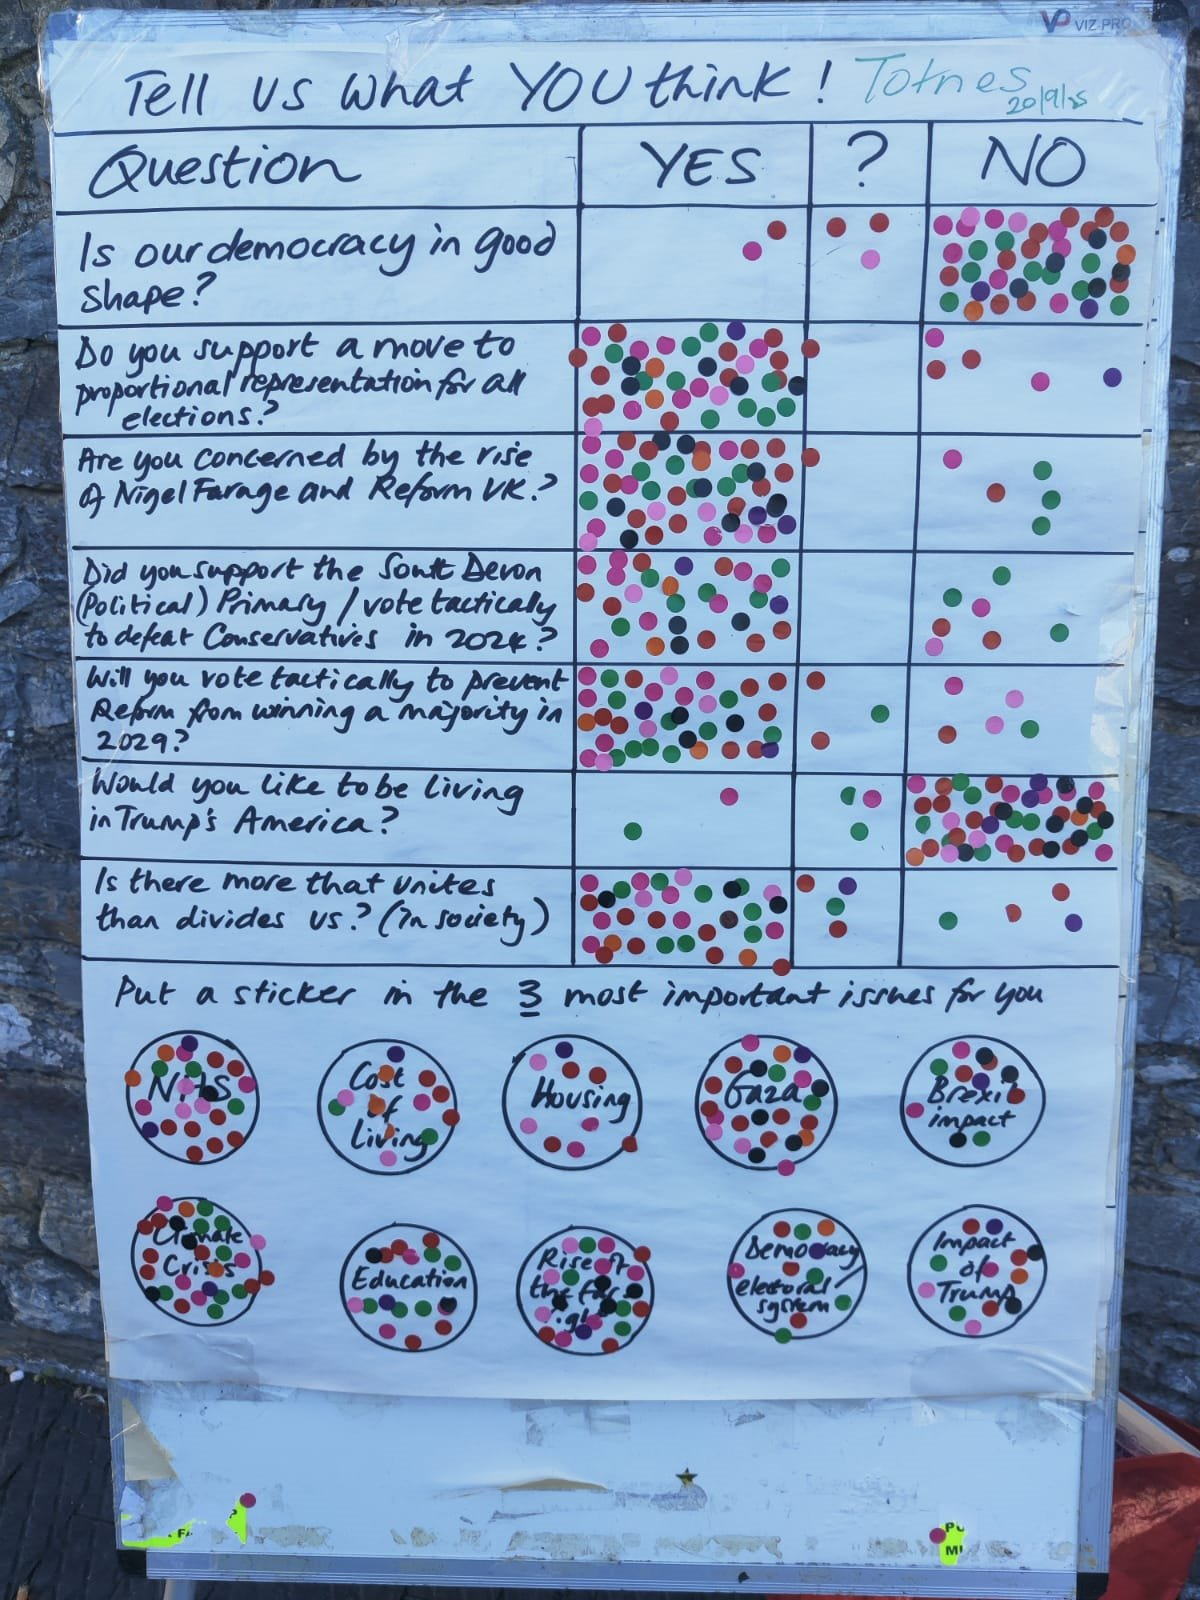 VP VIZ-PRO
Tell us what YOU think! Totnes
20/9/25
Question YES ? NO
Is our democracy in good
shape?
Do you support a move to
proportional representation for all
elections?
Are you concerned by the rise
of Nigel Farage and Reform UK?
Did you support the South Devon
(Political) Primary / vote tactically
to defeat Conservatives in 2024?
Will you vote tactically to prevent
Reform from winning a majority in
2029?
Would you like to be living
in Trump's America?
Is there more that unites
than divides us? (in society)
Put a sticker in the 3 most important issues for you
NHS
Cost
of
Living
Housing
Gaza
Brexit
impact
Climate
Crisis
Education
Rise of
the far
Democracy
electoral /
system
Impact
of
Trump
?
FA
PU
MI